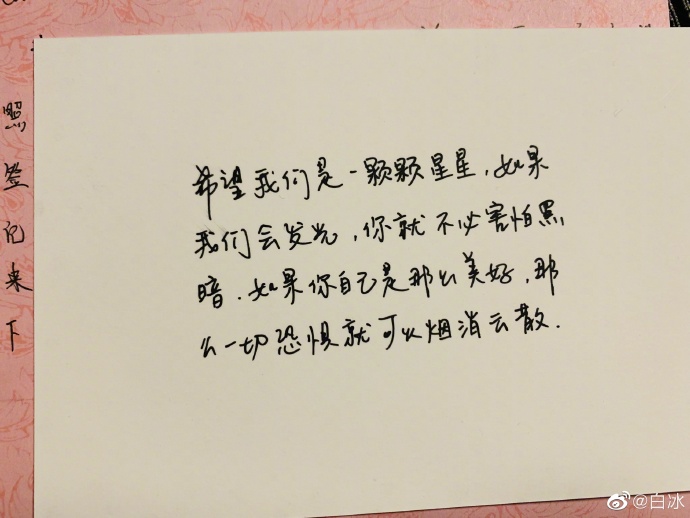 希望我们是一颗颗星星，如果
我们会发光，你就不必害怕黑
暗．如果你自己是那么美好，那
么一切恐惧就可以烟消云散．
照
签
记
来
下
@白冰